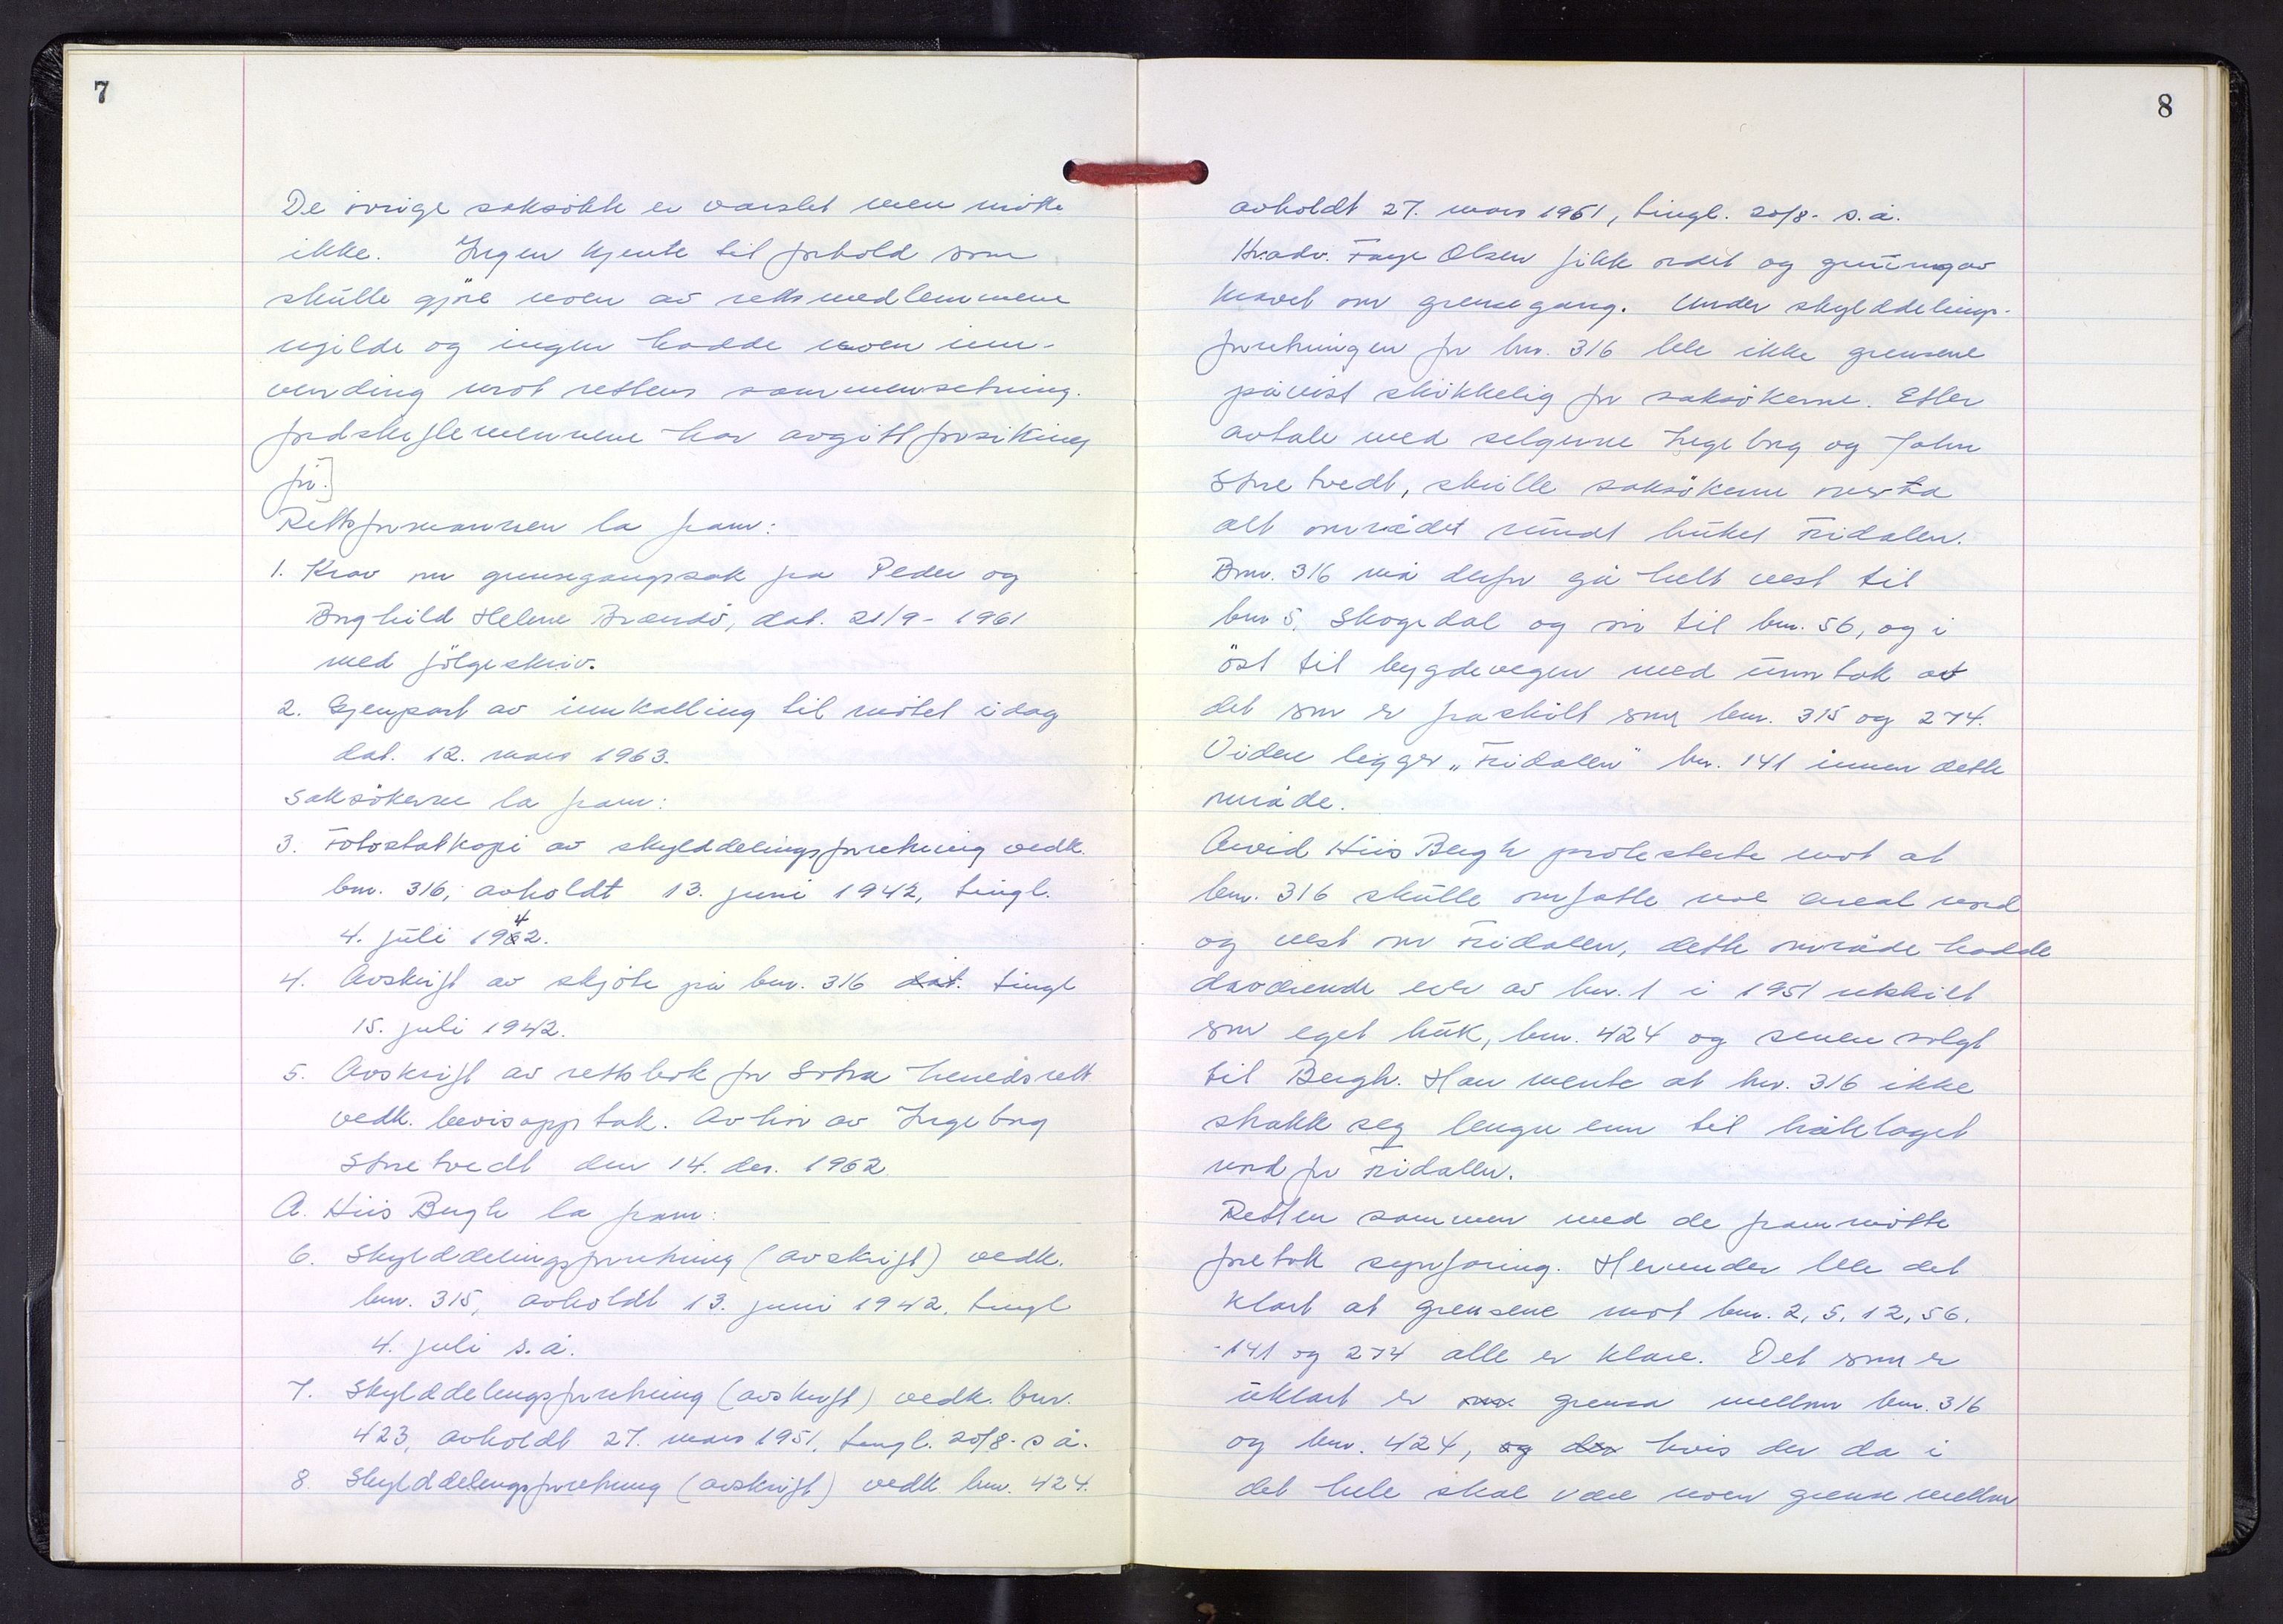 7
De övrige saksökte er varslet men mötte
ikke. Ingen kjente til forhold som
skulle gjöre noen av rettsmedlemmene
ugilde og ingen hadde noen inn-
vending mot rettens sammensetning.
Jordskiftemennene har avgitt forsikring
för.]
Rettsformannen la fram:
1. Krav om grensegangssak fra Peder og
Borghild Helene Brandö, dat. 21/9 - 1961
med fölgeskriv.
2. Gjenpart av innkalling til mötet idag
dat. 12. mars 1963.
Saksökerne la fram:
3. Fotostatkopi av skylddelingsforretning vedk.
bnr. 316, avholdt 13. juni 1942, tingl.
4. juli 1942.
4. Avskrift av skjöte på bnr. 316 dat. tingl
15. juli 1942.
5. Avskrift av rettsbok for Sotra herredsrett
vedk. bevisopptak. Avhör av Ingeborg
Storetvedt den 14. des. 1962
A. Hiis Bergh la fram:
6. Skylddelingsforretning (avskrift) vedk.
bnr. 315, avholdt 13. juni 1942, tingl
4. juli s.å.
7. Skylddelingsforretning (avskrift) vedk. bnr.
423, avholdt 27. mars 1951, tingl. 20/8 - s å.
8. Skylddelingsforretning (avskrift) vedk bnr. 424.
8
avholdt 27. mars 1961, tingl. 20/8 - s.å.
H.r.adv. Faye Olsen fikk ordet og grunngav
kravet om grensegang. Under skylddelings-
forretningen for bnr. 316 ble ikke grensene
påvist skikkelig for saksökerne. Etter
avtale med selgerne Ingeborg og John
Storetvedt, skulle saksökerne overta
alt området rundt bruket Fridalen.
Bnr. 316 må derfor gå helt vest til
bnr 5, Skogedal og til bnr. 56, og i
öst til bygdevegen med unntak av
det som er fraskilt som bnr. 315 og 274.
Videre ligger „Fridalen" bnr. 141 innen dette
område.
Arvid Hiis Bergh protesterte mot at
bnr. 316 skulle omfatte noe areal nord
og vest om Fridalen, dette område hadde
daværende eier av bnr. 1 i 1951 utskilt
som eget bruk, bnr. 424 og senere solgt
til Bergh. Han mente at bnr. 316 ikke
strakk seg lenger enn til tråklaget
nord for Fridalen.
Retten sammen med de frammötte
foretok synfaring. Herunder ble det
klart at grensene mot bnr. 2, 5, 12, 56,
141 og 274 alle er klare. Det som er
uklart er grensa mellom bnr. 316
og bnr. 424, og den hvis der da i
det hele skal være noen grense mellom